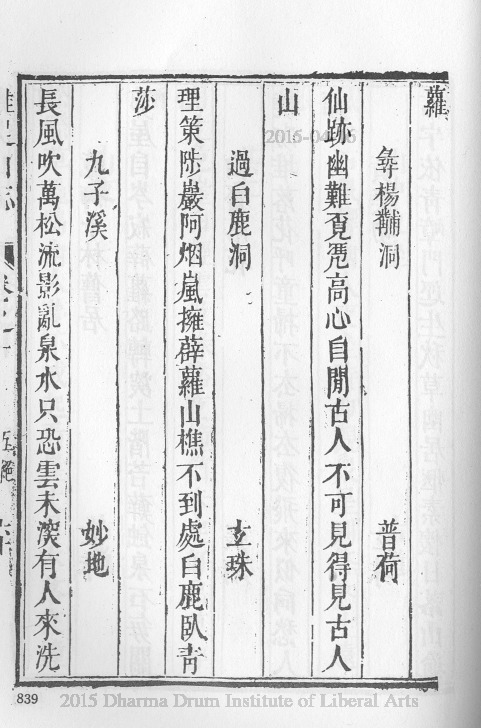 蘿
尋楊黼洞　普荷
仙跡幽難覓凭高心自閒古人不可見得見古人
山
過白鹿洞　玄珠
理策陟巖阿烟嵐擁薜蘿山樵不到處白鹿臥青
莎
九子溪　妙地
長風吹萬松流影亂泉水只恐雲未深有人來洗
839
2015 Dharma Drum Institute of Liberal Arts